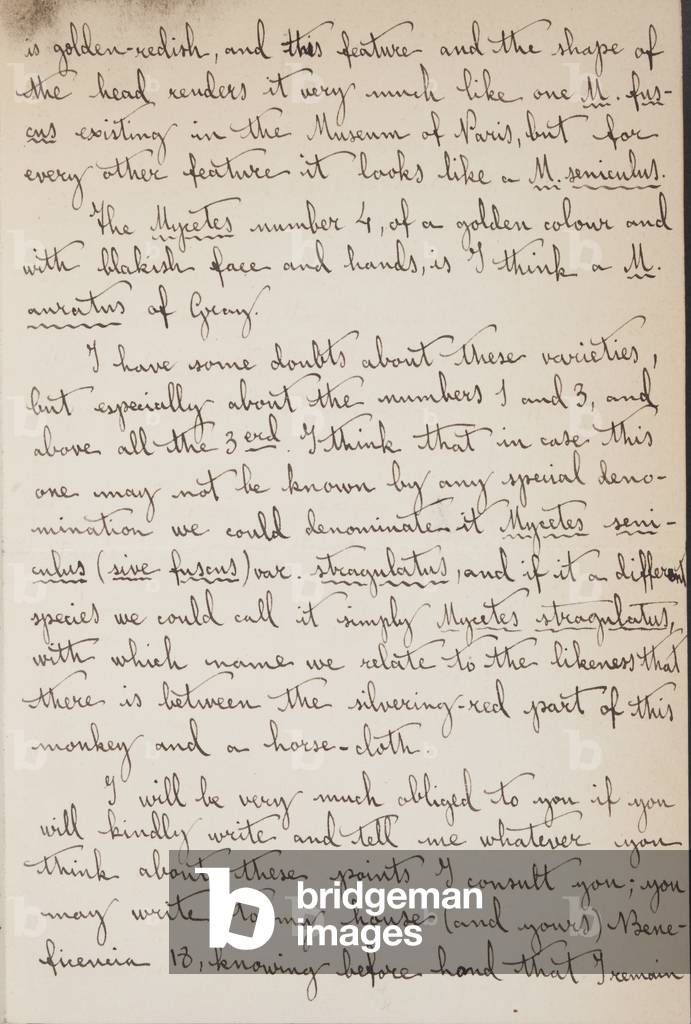 is golden-redish, and this feature and the shape of
the head renders it very much like one M. fus-
cus existing in the Museum of Paris, but for
every other feature it looks like a M. seniculus.
The Mycetes number 4, of a golden colour and
with blakish face and hands, is I think a M.
auratus of Gray.
I have some doubts about these varieties,
but especially about the numbers 1 and 3, and
above all the 3erd. I think that in case this
one may not be known by any special deno-
mination we could denominate it Mycetes seni-
culus (sive fuscus) var. stragulatus, and if it a different
species we could call it simply Mycetes stragulatus,
with which name we relate to the likeness that
there is between the silvering-red part of this
monkey and a horse-cloth.
I will be very much obliged to you if you
will kindly write and tell me whatever you
think about these points I consult you; you
may write to my house (and yours) Bene-
ficencia 18, knowing before hand that I remain
b bridgeman
images